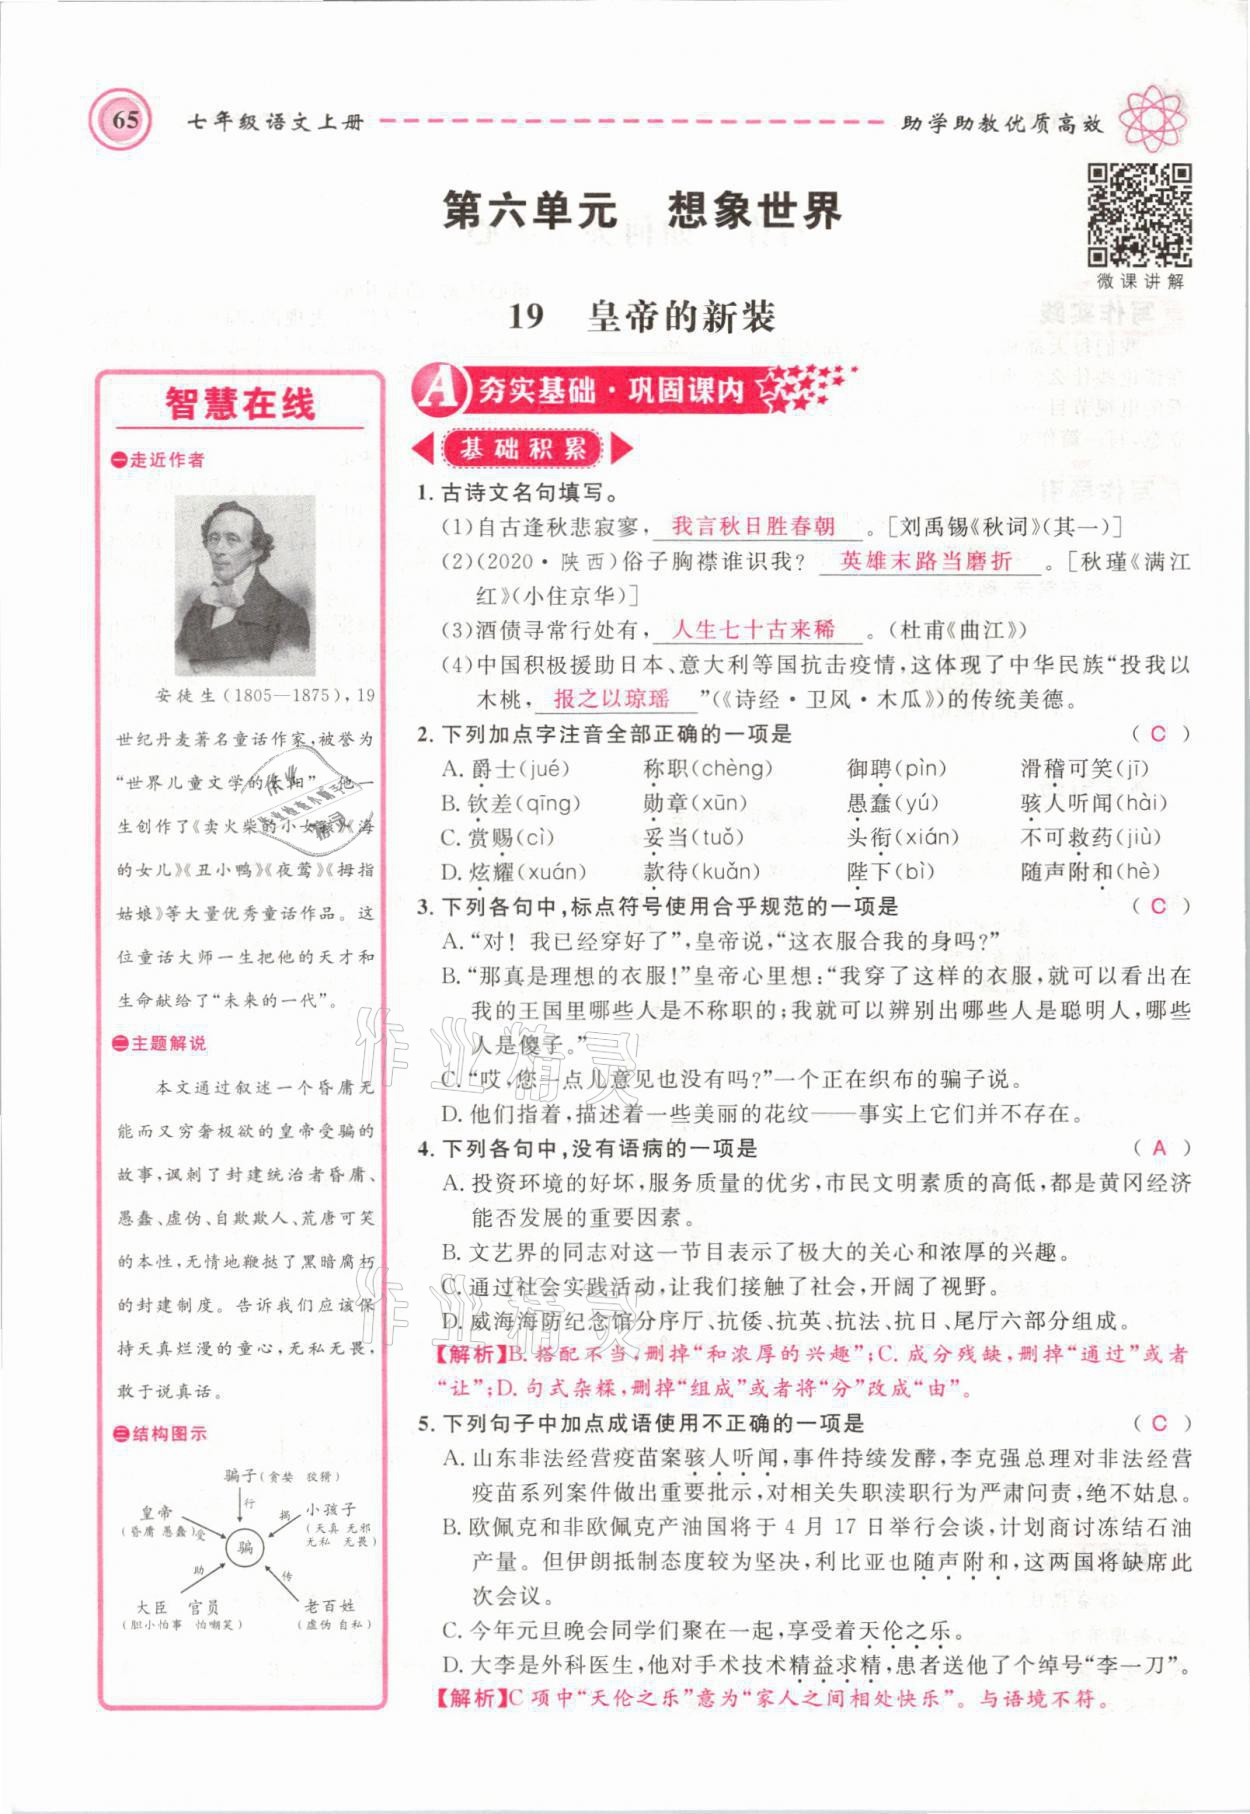 65
七年级语文上册
助学助教优质高效
第六单元 想象世界
微课讲解
19 皇帝的新装
智慧在线
一走近作者
安徒生(1805—1875),19
世纪丹麦著名童话作家,被誉为
“世界儿童文学的太阳”。他一
生创作了《卖火柴的小女孩》《海
的女儿》《丑小鸭》《夜莺》《拇指
姑娘》等大量优秀童话作品。这
位童话大师一生把他的天才和
生命献给了“未来的一代”。
二主题解说
本文通过叙述一个昏庸无
能而又穷奢极欲的皇帝受骗的
故事,讽刺了封建统治者昏庸、
愚蠢、虚伪、自欺欺人、荒唐可笑
的本性,无情地鞭挞了黑暗腐朽
的封建制度。告诉我们应该保
持天真烂漫的童心,无私无畏,
敢于说真话。
三结构图示
骗子(贪婪 狡猾)
行
皇帝
(昏庸 愚蠢)
受
揭
小孩子
(天真 无邪
无私 无畏)
骗
助
传
大臣 官员
(胆小怕事 怕嘲笑)
老百姓
(虚伪 自私)
A 夯实基础·巩固课内
基础积累
1. 古诗文名句填写。
(1)自古逢秋悲寂寥, 我言秋日胜春朝 。[刘禹锡《秋词》(其一)]
(2)(2020·陕西)俗子胸襟谁识我? 英雄末路当磨折 。[秋瑾《满江
红》(小住京华)]
(3)酒债寻常行处有, 人生七十古来稀 。(杜甫《曲江》)
(4)中国积极援助日本、意大利等国抗击疫情,这体现了中华民族“投我以
木桃, 报之以琼瑶 ”(《诗经·卫风·木瓜》)的传统美德。
2. 下列加点字注音全部正确的一项是 ( C )
A. 爵士(jué) 称职(chèng) 御聘(pìn) 滑稽可笑(jī)
B. 钦差(qīng) 勋章(xūn) 愚蠢(yú) 骇人听闻(hài)
C. 赏赐(cì) 妥当(tuǒ) 头衔(xián) 不可救药(jiù)
D. 炫耀(xuán) 款待(kuǎn) 陛下(bì) 随声附和(hè)
3. 下列各句中,标点符号使用合乎规范的一项是 ( C )
A.“对！我已经穿好了”,皇帝说,“这衣服合我的身吗?”
B.“那真是理想的衣服!”皇帝心里想:“我穿了这样的衣服,就可以看出在
我的王国里哪些人是不称职的;我就可以辨别出哪些人是聪明人,哪些
人是傻子。”
C.“哎,您一点儿意见也没有吗?”一个正在织布的骗子说。
D. 他们指着,描述着一些美丽的花纹——事实上它们并不存在。
4. 下列各句中,没有语病的一项是 ( A )
A. 投资环境的好坏,服务质量的优劣,市民文明素质的高低,都是黄冈经济
能否发展的重要因素。
B. 文艺界的同志对这一节目表示了极大的关心和浓厚的兴趣。
C. 通过社会实践活动,让我们接触了社会,开阔了视野。
D. 威海海防纪念馆分序厅、抗倭、抗英、抗法、抗日、尾厅六部分组成。
【解析】B. 搭配不当,删掉“和浓厚的兴趣”;C. 成分残缺,删掉“通过”或者
“让”;D. 句式杂糅,删掉“组成”或者将“分”改成“由”。
5. 下列句子中加点成语使用不正确的一项是 ( C )
A. 山东非法经营疫苗案骇人听闻,事件持续发酵,李克强总理对非法经营
疫苗系列案件做出重要批示,对相关失职渎职行为严肃问责,绝不姑息。
B. 欧佩克和非欧佩克产油国将于 4 月 17 日举行会谈,计划商讨冻结石油
产量。但伊朗抵制态度较为坚决,利比亚也随声附和,这两国将缺席此
次会议。
C. 今年元旦晚会同学们聚在一起,享受着天伦之乐。
D. 大李是外科医生,他对手术技术精益求精,患者送他了个绰号“李一刀”。
【解析】C 项中“天伦之乐”意为“家人之间相处快乐”。与语境不符。
作业精灵
作业精灵